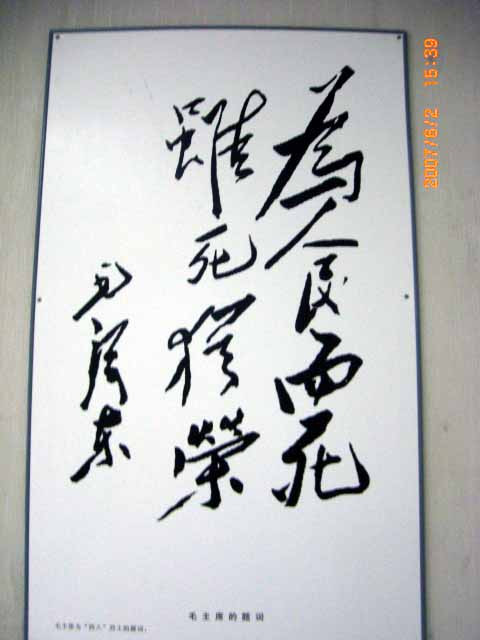 為人民而死
雖死猶榮
毛澤东
毛主席的题词
毛主席为"四八"烈士的题词。
2007/6/2 15:39